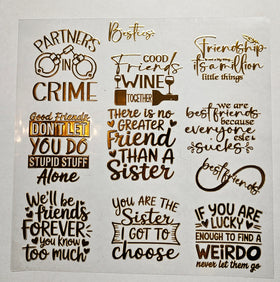 PARTNERS
IN
CRIME
Besties
GOOD
Friends
WINE
TOGETHER
Friendship
it's a million
little things
Good Friends
DON'T LET
YOU DO
STUPID STUFF
Alone
There is no
GREATER
Friend
THAN A
Sister
we are
best friends
because
everyone
else
sucks
best friends
We'll be
friends
FOREVER
you know
too much
YOU ARE THE
Sister
I GOT TO
choose
IF YOU ARE
LUCKY
ENOUGH TO FIND A
WEIRDO
never let them go